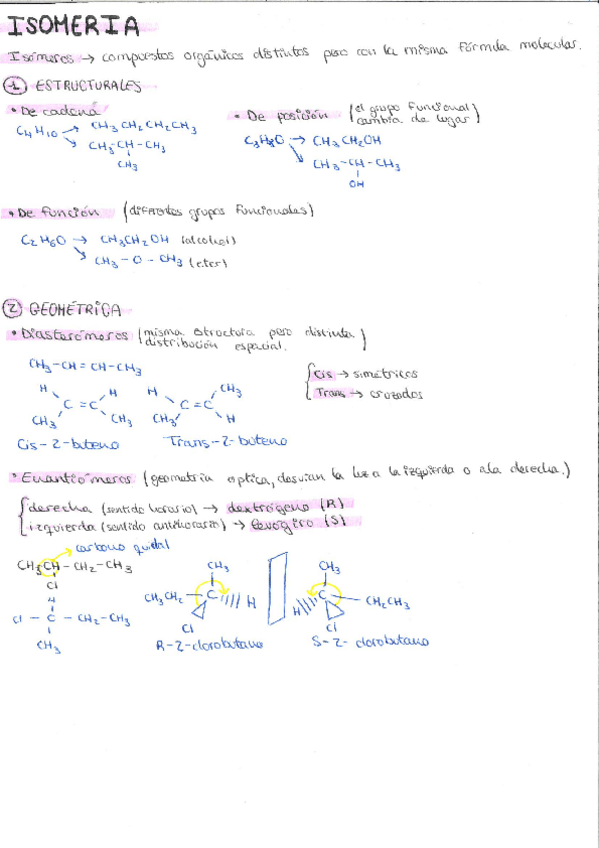 ISOMERIA
Isómeros → compuestos orgánicos distintos pero con la misma fórmula molecular.
① ESTRUCTURALES
• De cadena
C4H10 → CH3CH2CH2CH3
→ CH3-CH-CH3
CH3
• De posición (el grupo funcional cambia de lugar)
C3H8O → CH3CH2OH
→ CH3-CH-CH3
OH
• De función (diferentes grupos funcionales)
C2H6O → CH3CH2OH (alcohol)
→ CH3-O-CH3 (eter)
② GEOMÉTRICA
• Diasterómeros (misma structura pero distinta distribución espacial.)
CH3-CH=CH-CH3
H H
C=C
CH3 CH3
Cis-2-buteno
H CH3
C=C
CH3 H
Trans-2-buteno
Cis → simétricos
Trans → cruzados
• Enantiómeros (geometria optica, desvian la luz a la izquierda o a la derecha.)
derecha (sentido horario) → dextrógeno (R)
izquierda (sentido antihorario) → levógiro (S)
carbono quiral
CH3CH-CH2-CH3
Cl
H
Cl-C-CH2-CH3
CH3
CH3
CH3CH2-C H
Cl
R-2-clorobutano
CH3
H C-CH2CH3
Cl
S-2-clorobutano